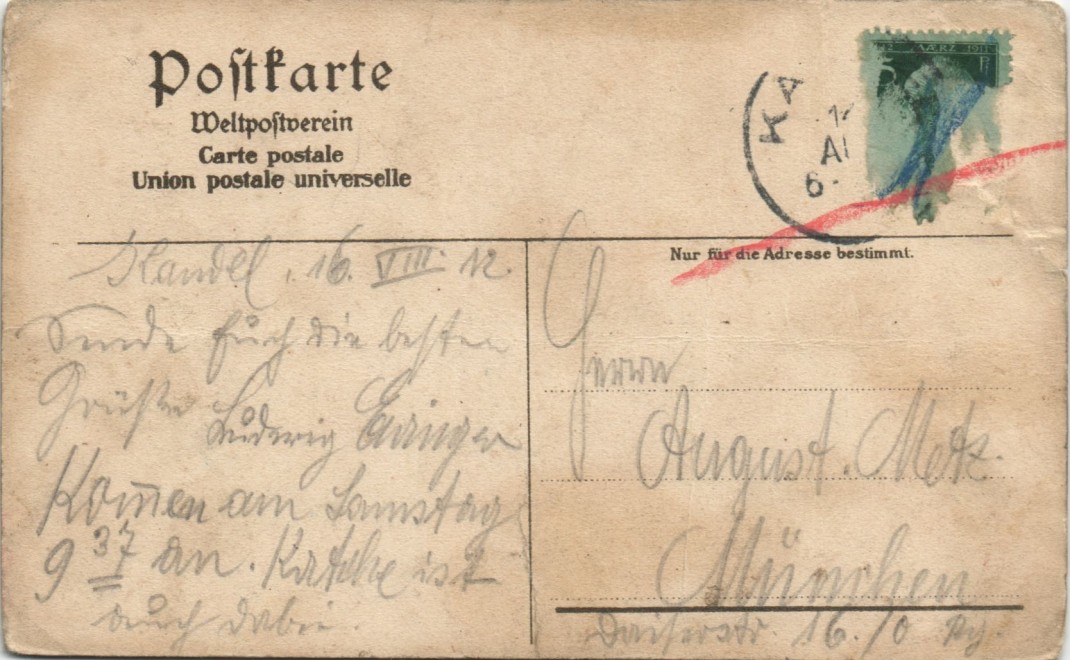 Postkarte
Weltpostverein
Carte postale
Union postale universelle
MÆRZ 1911
5 Pf
KA
AU
6
Nur für die Adresse bestimmt.
Kandel, 16. VIII. 12.
Sende Euch die besten
Grüße Ludwig
Kom̅en am Samstag
9 37 an. Kätche ist
auch dabei.
Herrn
August Metz.
München
16